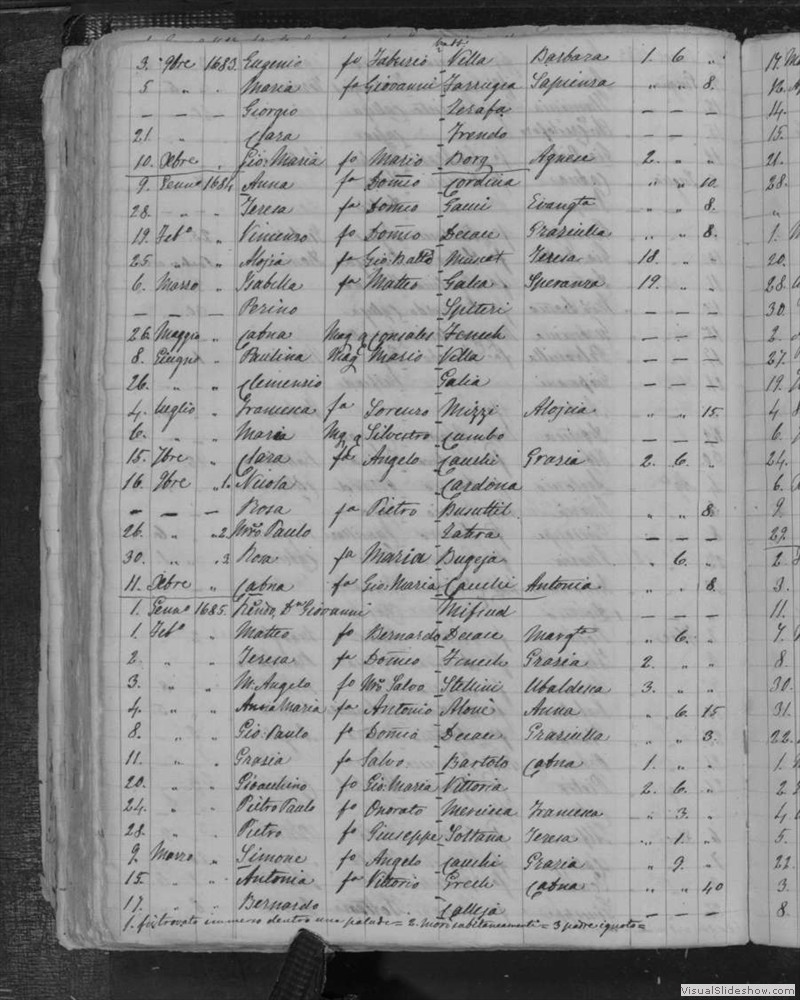 3. 9bre 1683. Eugenio fo Fabrisio Villa Barbara 1. 6. „
5 „ „ Maria fa Giovanni Farrugia Sapienza „ „ 8.
— — — Giorgio Zerafa — — —
21. „ Clara Trendo — — —
10. Xbre „ Gio: Maria fo Mario Borg Agnesa 2. „ „
9. Genno 1684 Anna fa Domco Cordina „ „ 10.
28. „ „ Teresa fa Domco Gauci Evangta „ „ 8.
19. Feba „ Vincenzo fo Domco Decae Graziulla „ „ 8.
25. „ „ Aloisia fa Gio: Batta Muscat Teresa 18. „ „
6. Marzo „ Isabella fa Matteo Galea Speranza 19. „ „
— — — Perino Spiteri — — —
26. Maggio „ Catna Mag q Consales Fenech — — —
8. Giugno „ Paulina Mag Mario Villa — — —
26. „ „ Clemensio Galia — — —
4. Luglio „ Francesca fa Lorenzo Mizzi Aloisia „ „ 15.
6. „ „ Maria Mg q Silvestro Cumbo — — —
15. 7bre „ Clara fa Angelo Cauchi Grasia 2. 6. „
16. 9bre „ 1. Nicola Cardona
— — — Rosa fa Pietro Busuttil „ „ 8.
26. „ „ 2. Mro Paulo — — —
30. „ „ 3 Rosa fa Maria Bugeja „ 6. „
11. Xbre „ Catna fa Gio: Maria Cauchi Antonia „ „ 8.
1. Genno 1685. Rendo. Dn Giovanni Mifsud — — —
1. Feba „ Matteo fo Bernardo Decae Margta „ 6. „
2. „ „ Teresa fa Domco Fenech Grasia 2. „ „
3. „ „ M: Angelo fo Mro Salvo Stellini Ubaldesca 3. „ „
4. „ „ Anna Maria fa Antonio Aloni Anna „ 6. 15
8. „ „ Gio: Paulo fo Domco Decae Graziulla „ „ 3.
11. „ „ Grasia fa Salvo Bartolo Catna 1. „ „
20. „ „ Gioachino fo Gio: Maria Vittoria 2. 6. „
24. „ „ Pietro Paulo fo Onorato Mercieca Francesca „ 3. „
28. „ „ Pietro fo Giuseppe Soltana Teresa „ 1. „
9. Marzo „ Simone fo Angelo Cauchi Grasia „ 9. „
15. „ „ Antonia fa Vittorio Grech Catna „ „ 40
17. „ „ Bernardo Calleja — — —
1. fu trovato immerso dentro una palude = 2. mori subitaneamente = 3 padre ignoto =
VisualSlideshow.com